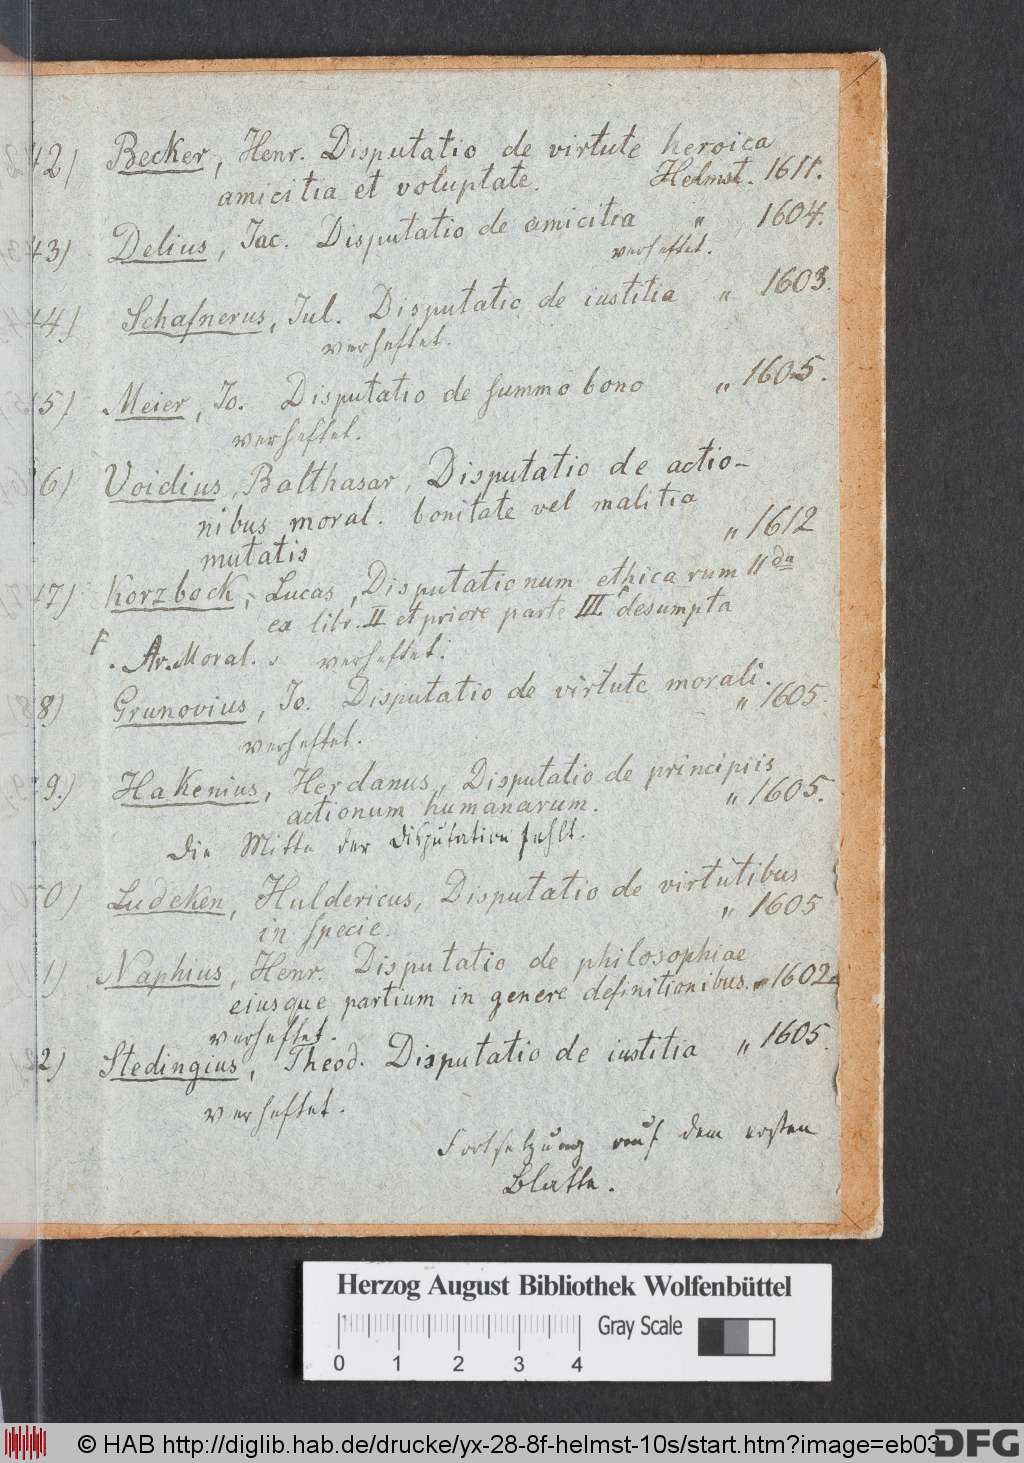 42) Becker, Henr. Disputatio de virtute heroica
amicitia et voluptate. Helmst. 1611.
43) Delius, Iac. Disputatio de amicitia " 1604.
verheftet.
44) Schafnerus, Iul. Disputatio de iustitia " 1603.
verheftet.
5) Meier, Io. Disputatio de summo bono " 1605.
verheftet.
6) Voidius, Balthasar, Disputatio de actio-
nibus moral. bonitate vel malitia
mutatis " 1612
47) Korzbock, Lucas, Disputationum ethicarum 11da
ex libr. II et priore parte III desumpta
Ar. Moral. verheftet.
8) Grunovius, Io. Disputatio de virtute morali.
" 1605.
verheftet.
9.) Hakenius, Herdanus, Disputatio de principiis
actionum humanarum. " 1605.
Die Mitte der Disputation fehlt.
0) Ludeken, Huldericus, Disputatio de virtutibus
in specie. " 1605
1) Naphius, Henr. Disputatio de philosophiae
eiusque partium in genere definitionibus. " 1602
verheftet.
2) Stedingius, Theod. Disputatio de iustitia " 1605.
verheftet.
Fortsetzung auf dem ersten
Blatte.
Herzog August Bibliothek Wolfenbüttel
Gray Scale
0 1 2 3 4
© HAB http://diglib.hab.de/drucke/yx-28-8f-helmst-10s/start.htm?image=eb03
DFG